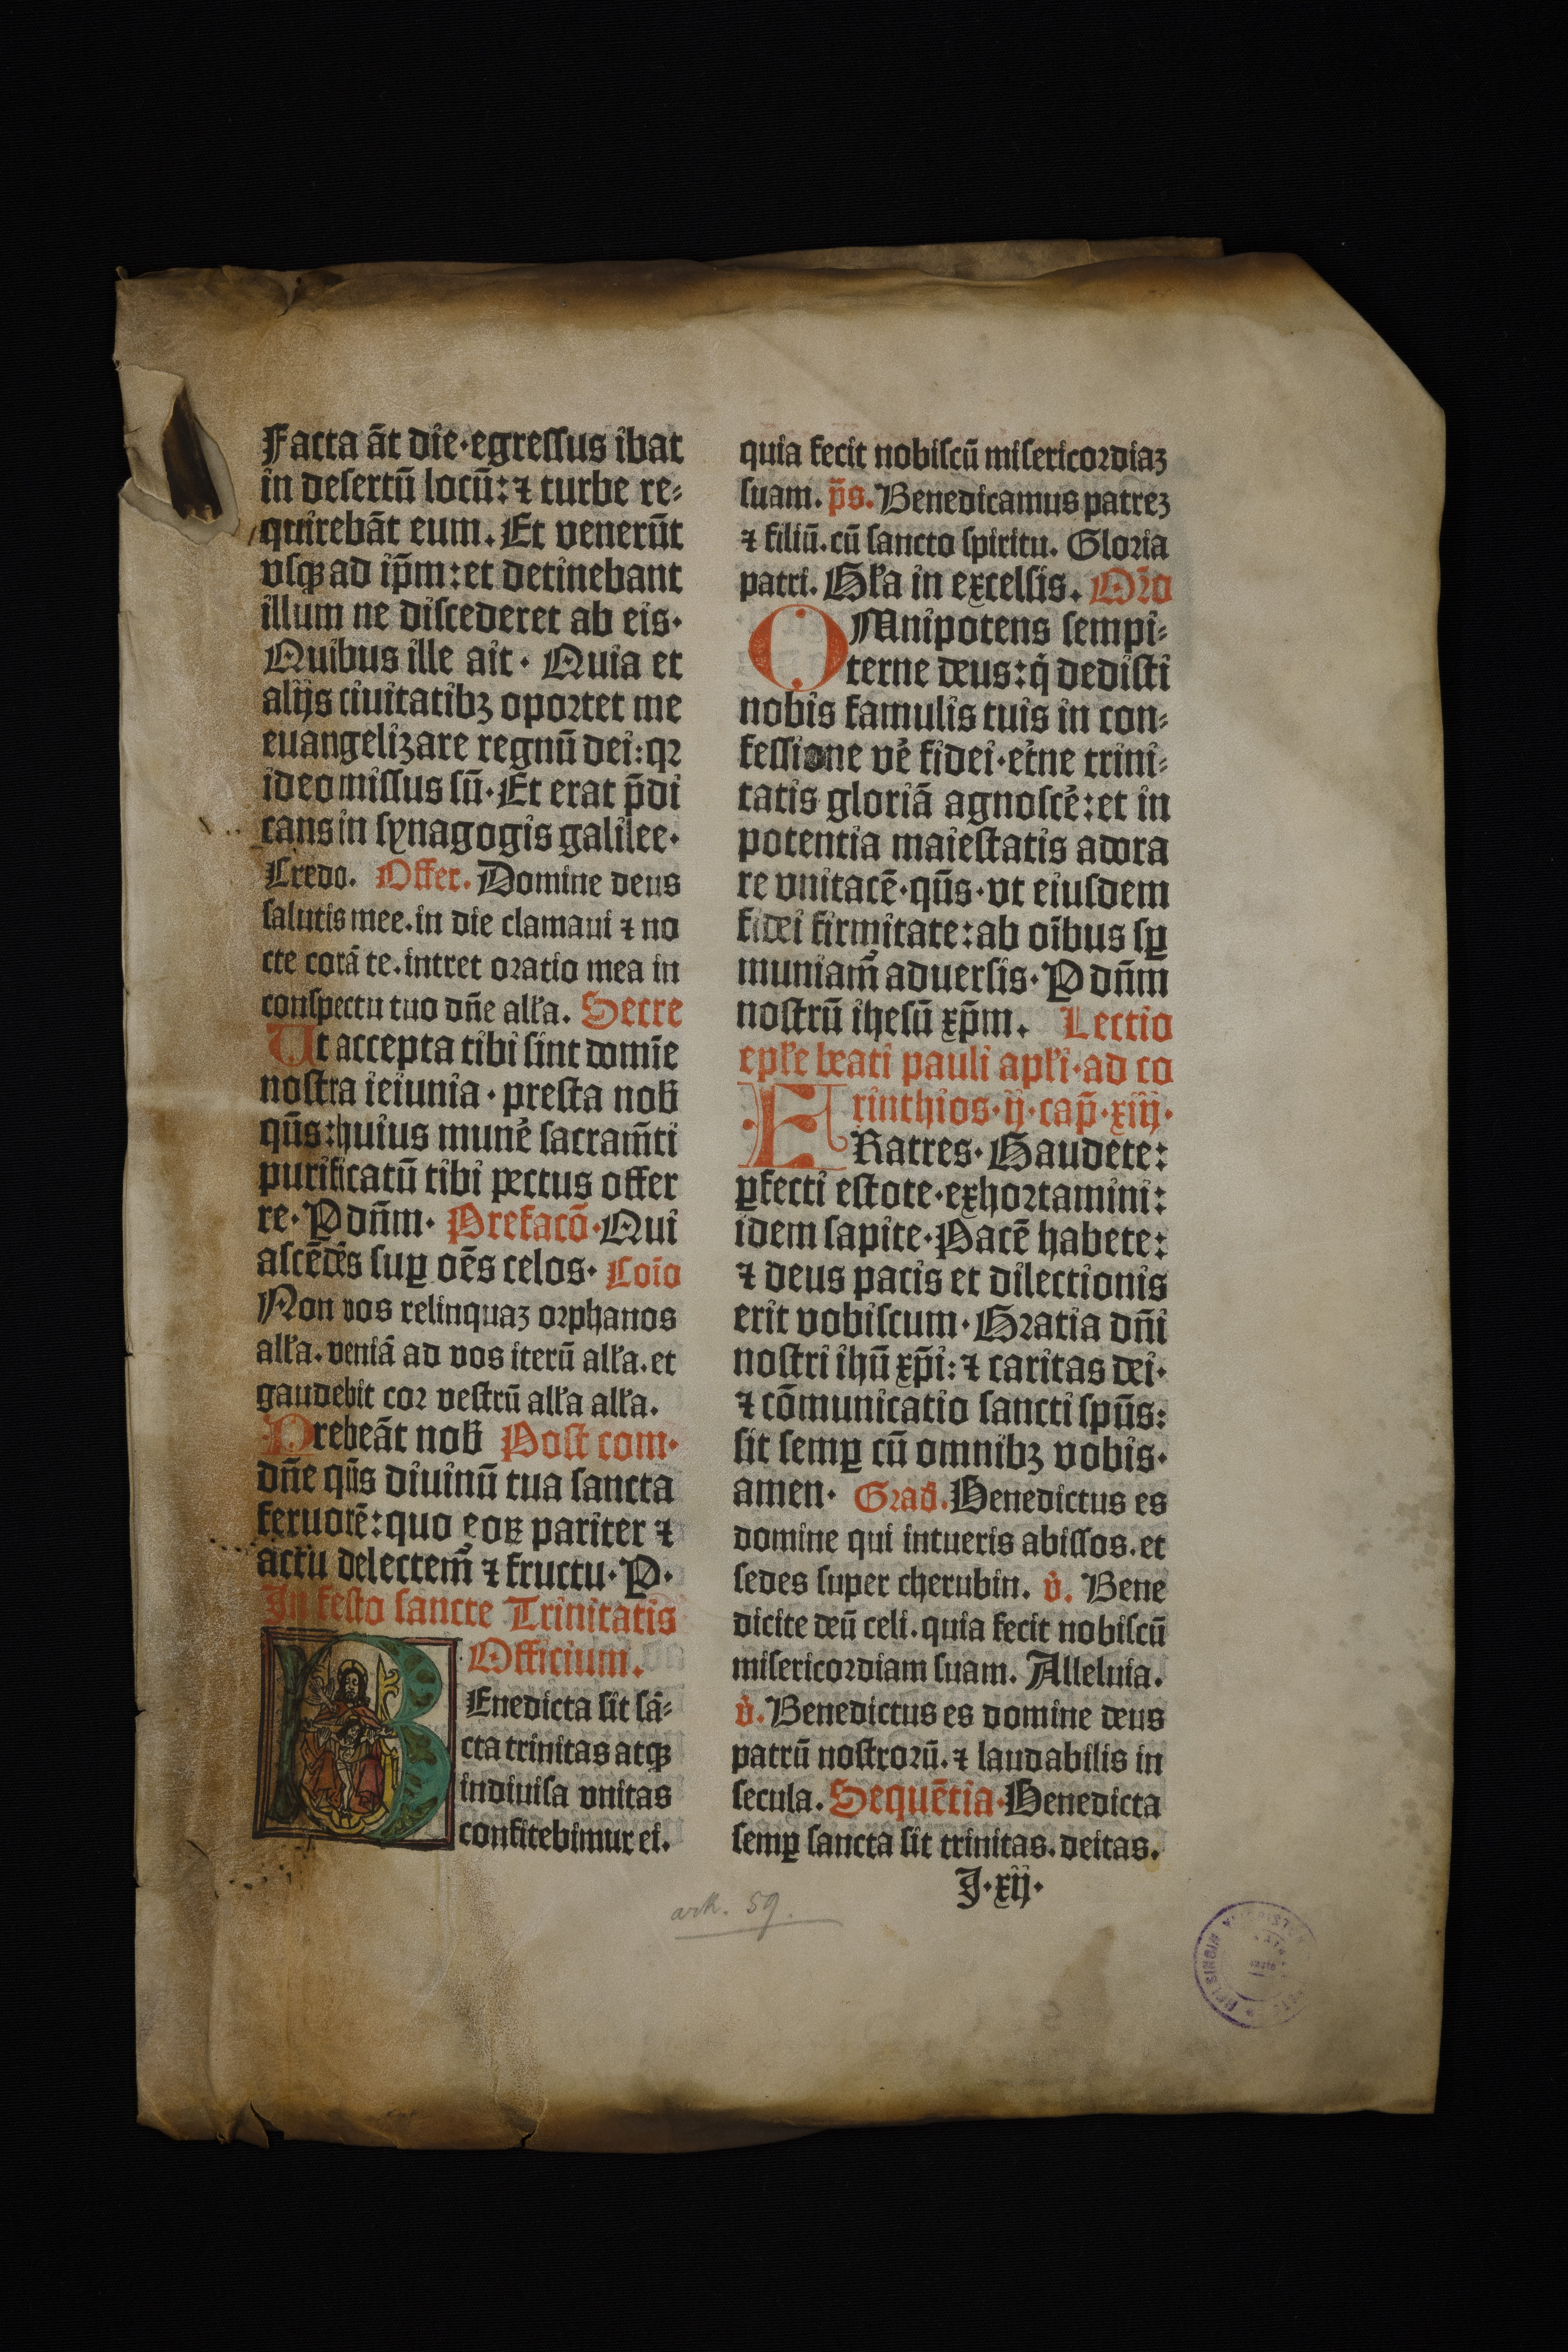 Facta āt die·egressus ibat
in desertū locū:⁊ turbe re⸗
quirebāt eum. Et venerūt
vsqꝫ ad ip̄m:et detinebant
illum ne discederet ab eis·
Quibus ille ait· Quia et
alijs ciuitatibꝫ oportet me
euangelizare regnū dei:qꝛ
ideo missus sū·Et erat p̄di
cans in synagogis galilee·
Credo. Offer. Domine deus
salutis mee.in die clamaui ⁊ no
cte corā te.intret oratio mea in
conspectu tuo dn̄e all'a. Secre
Ut accepta tibi sint domīe
nostra ieiunia·presta nob̄
qūs:huius mune᷒ sacram̄ti
purificatū tibi pectus offer
re·P don̄m· Prefacō·Qui
ascēdēs suꝑ oēs celos· Coīo
Non vos relinquaꝫ orphanos
all'a.veniā ad vos iterū all'a.et
gaudebit cor vestrū all'a all'a.
Prebeāt nob̄ Post com·
dn̄e qūs diuinū tua sancta
feruorē:quo eoꝝ pariter ⁊
actu delectem᷒ ⁊ fructu·P·
In festo sancte Trinitatis
Officium.
BEnedicta sit sā⸗
cta trinitas atqꝫ
indiuisa vnitas
confitebimur ei.
quia fecit nobiscū misericordiaꝫ
suam. p̄s. Benedicamus patreꝫ
⁊ filiū.cū sancto spiritu. Gloria
patri. Gl'a in excelsis. Or̄o
OMnipotens sempi⸗
terne deus:q̇ dedisti
nobis famulis tuis in con⸗
fessione ve᷒ fidei·et᷒ne trini⸗
tatis gloriā agnoscē:et in
potentia maiestatis adora
re vnitatē·qūs·vt eiusdem
fidei firmitate:ab oībus sꝑ
muniam᷒ aduersis·P dn̄m
nostrū ihesū xp̄m. Lectio
epl'e beati pauli apl'i·ad co
rinthios·ij·cap̄·xiij·
FRatres·Gaudete:
ꝑfecti estote·exhortamini:
idem sapite·Pacē habete:
⁊ deus pacis et dilectionis
erit vobiscum·Gratia dn̄i
nostri ihū xp̄i:⁊ caritas dei·
⁊ cōmunicatio sancti spūs:
sit semꝑ cū omnibꝫ vobis·
amen· Grad̄. Benedictus es
domine qui intueris abissos.et
sedes super cherubin. v̇. Bene
dicite deū celi.quia fecit nobiscū
misericordiam suam. Alleluia.
v̇. Benedictus es domine deus
patrū nostrorū.⁊ laudabilis in
secula. Sequētia·Benedicta
semꝑ sancta sit trinitas.deitas.
J·xij·
ark. 59.